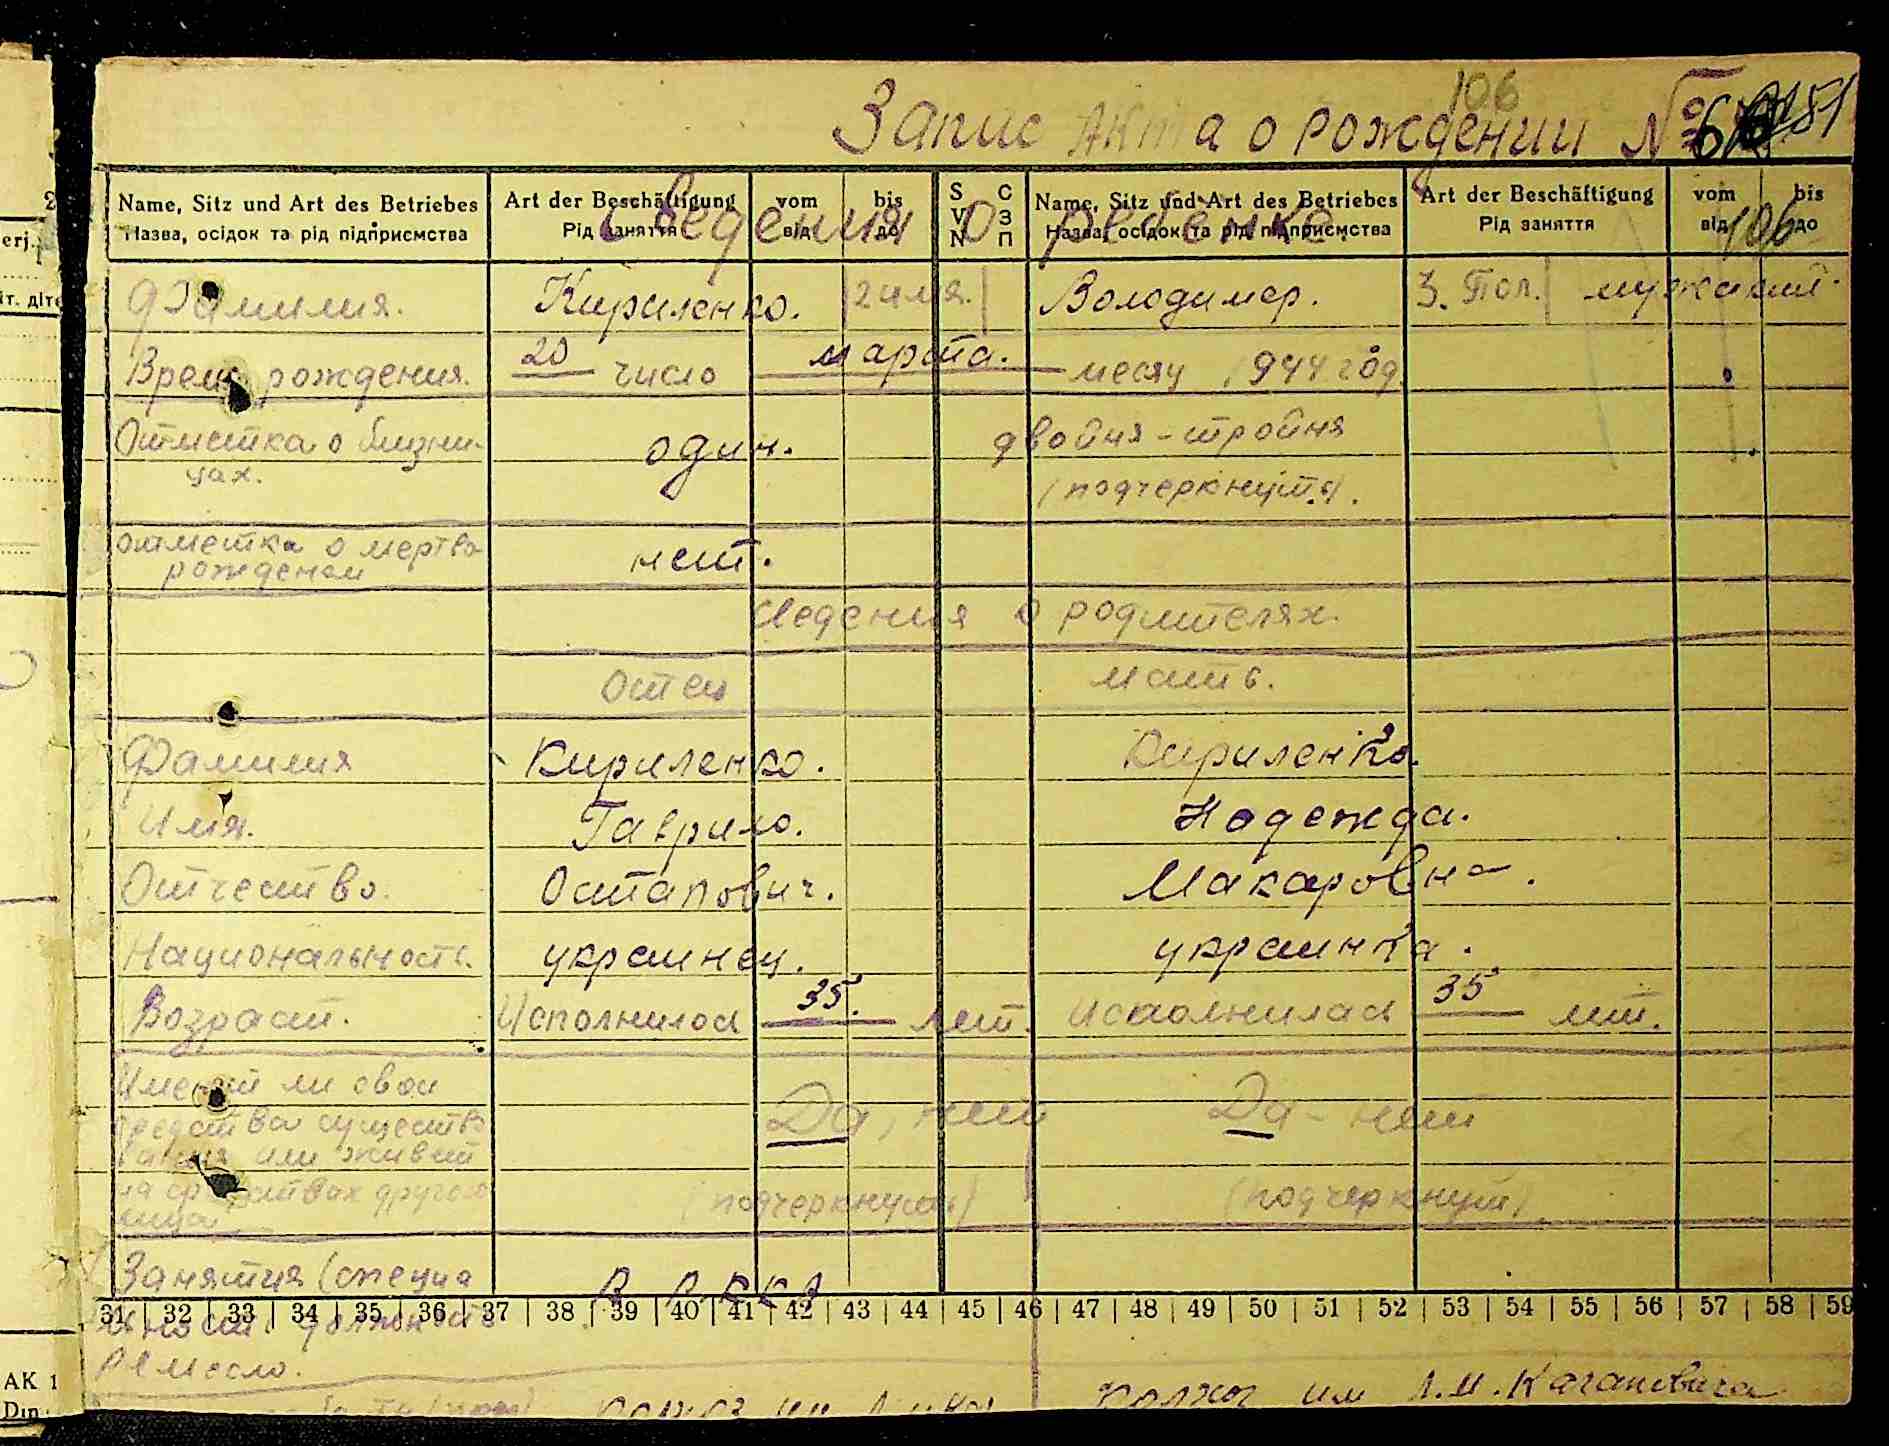 106
Запис Акта о рождении №
Name, Sitz und Art des Betriebes Art der Beschäftigung vom bis S V N С З П Name, Sitz und Art des Betriebes Art der Beschäftigung vom bis
Назва, осідок та рід підприємства Рід заняття від до Назва, осідок та рід підприємства Рід заняття від до
Сведения о ребенке. 106
Фамилия. Кириленко. 2 имя. Володимер. 3. Пол. мужеский
Время рождения. 20 число марта. месяц 1944 год
Отметка о близни-
цах. один. двойня - тройня
(подчеркнуть).
отметка о мертво
рожденом нет.
Сведения о родителях.
Отец мать.
Фамилия Кириленко. Кириленко.
Имя. Гаврило. Надежда.
Отчество. Остапович. Макаровна.
Национальность. украинец. украинка.
Возраст. Исполнилось 35. лет. Исполнилось 35 лет.
Имеет ли свои
средства существо
вания или живет Да, нет Да - нет
на средствах другого
лица (подчеркнуть) (подчеркнут)
Занятия (специа В Р.К.К.А
31 32 33 34 35 36 37 38 39 40 41 42 43 44 45 46 47 48 49 50 51 52 53 54 55 56 57 58 59
льность, должность
Ремесло.
колхоз им колхоз им Л.М. Кагановича
erj.
іт. діте
AK 1
Din